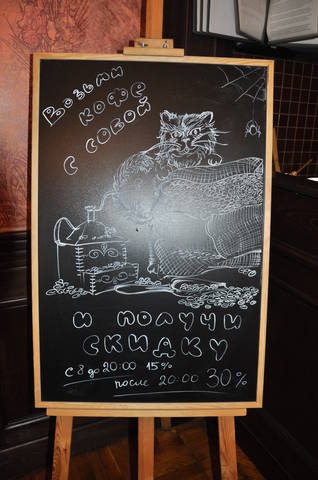 Возьми
кофе
с собой
и получи
скидку
с 8 до 20:00 15%
после 20:00 30%